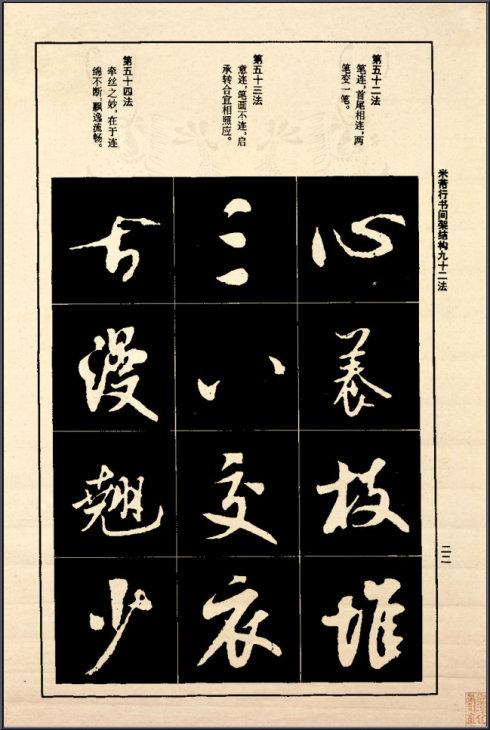 米芾行书间架结构九十二法
二二
第五十二法
笔连，首尾相连，两
笔变一笔。
第五十三法
意连，笔画不连，启
承转合宜相照应。
第五十四法
牵丝之妙，在于连
绵不断，飘逸流畅。
心养枝堆
三八交衣
方漫翘少